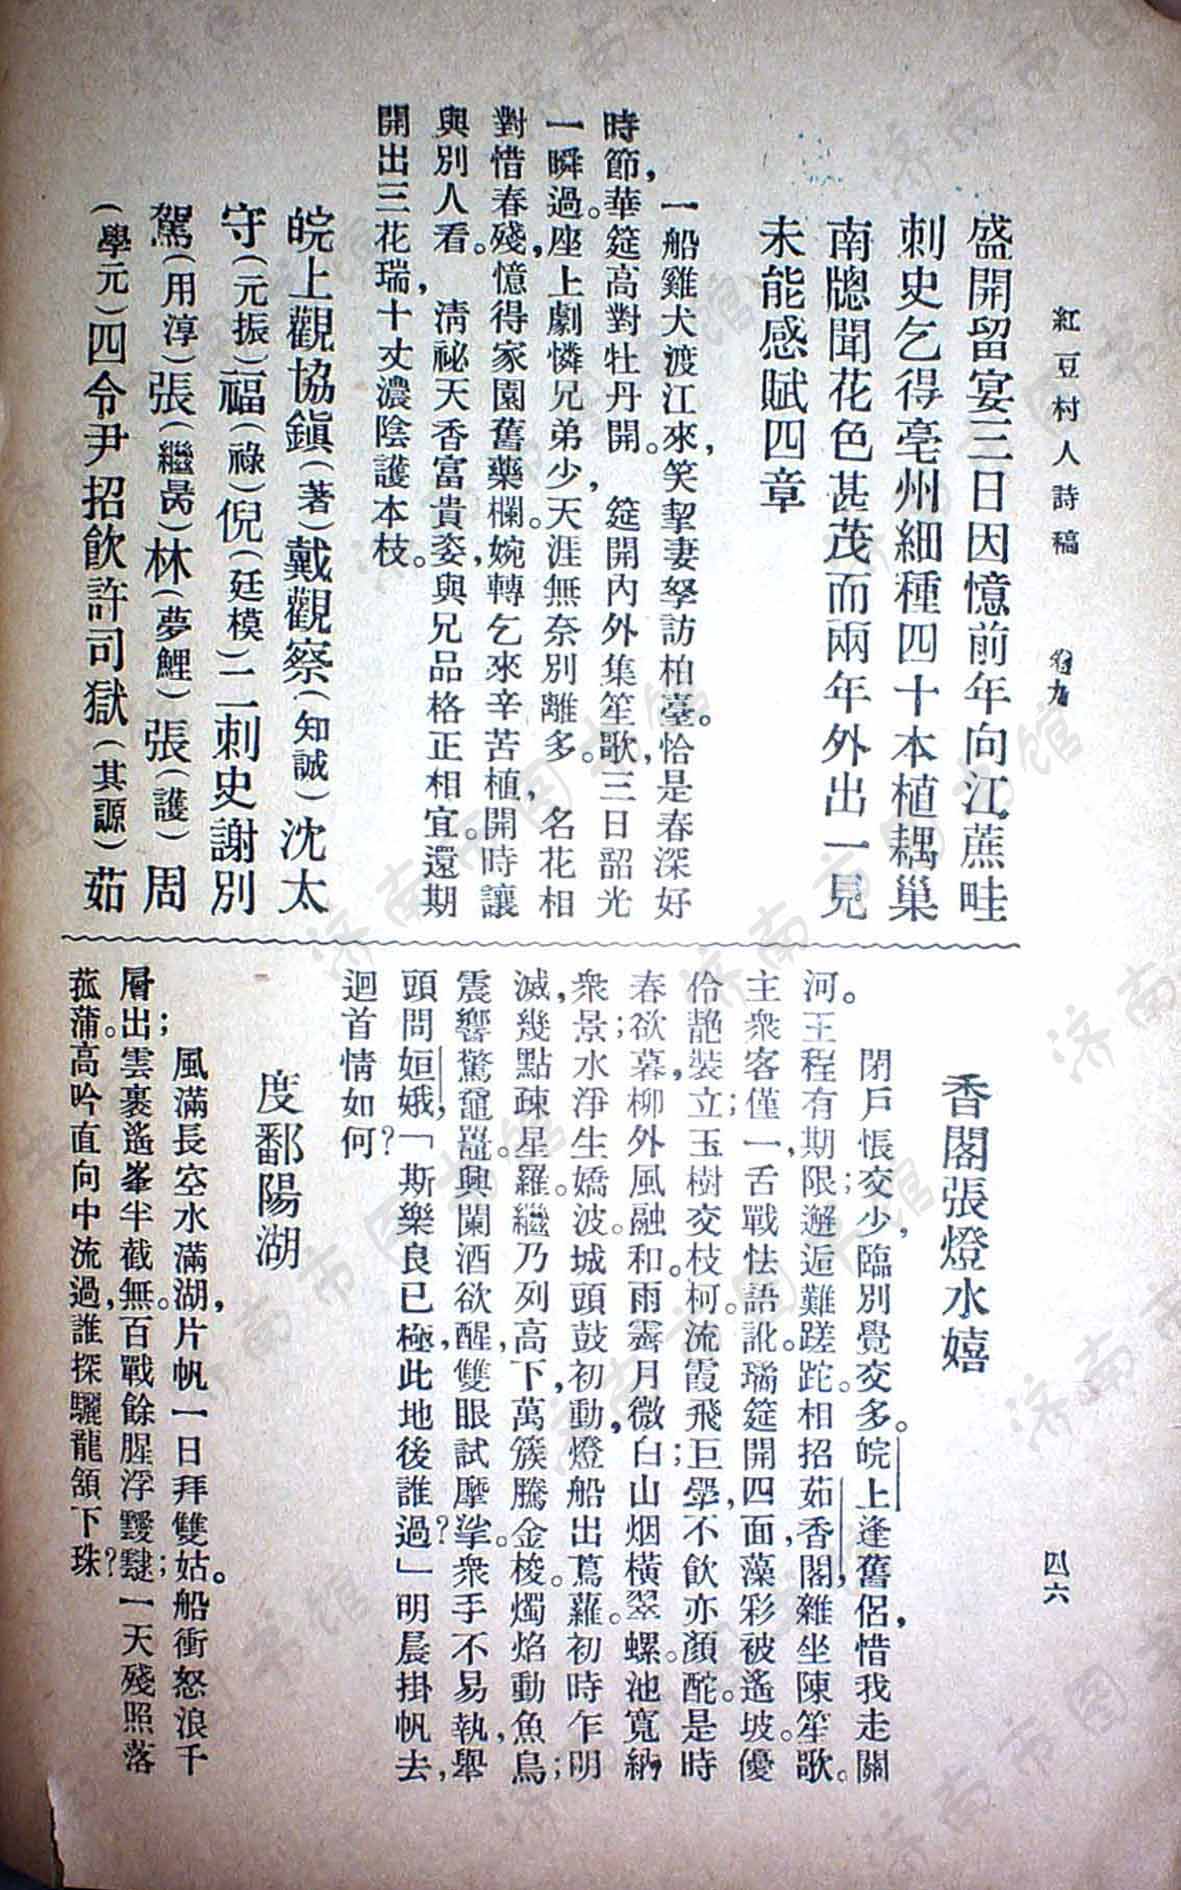 紅豆村人詩稿　卷九　四六
盛開留宴三日因憶前年向江蔗畦
刺史乞得亳州細種四十本植耦巢
南牕聞花色甚茂而兩年外出一見
未能感賦四章
一船雞犬渡江來，笑挈妻孥訪柏臺。恰是春深好
時節，華筵高對牡丹開。　筵開內外集笙歌，三日韶光
一瞬過。座上劇憐兄弟少，天涯無奈別離多。　名花相
對惜春殘，憶得家園舊藥欄。婉轉乞來辛苦植，開時讓
與別人看。　清祕天香富貴姿，與兄品格正相宜。還期
開出三花瑞，十丈濃陰護本枝。
皖上觀協鎮（著）戴觀察（知誠）沈太
守（元振）福（祿）倪（廷模）二刺史謝別
駕（用淳）張（繼昺）林（夢鯉）張（護）周
（學元）四令尹招飲許司獄（其諒）茹
香閣張燈水嬉
閉戶悵交少，臨別覺交多。皖上逢舊侶，惜我走關
河。王程有期限；邂逅難蹉跎。相招茹香閣，雜坐陳笙歌。
主衆客僅一，舌戰怯語訛。瑤筵開四面，藻彩被遙坡。優
伶靘裝立；玉樹交枝柯。流霞飛巨觥，不飲亦顏酡。是時
春欲暮，柳外風融和。雨霽月微白；山烟橫翠螺。池寬納
衆景；水淨生嬌波。城頭鼓初動，燈船出蔦蘿。初時乍明
滅，幾點疎星羅。繼乃列高下，萬簇騰金梭。燭焰動魚鳥；
震響驚鼉鼉。興闌酒欲醒，雙眼試摩挲。衆手不易執，舉
頭問姮娥，「斯樂良已極，此地後誰過？」明晨掛帆去，
迴首情如何？
度鄱陽湖
風滿長空水滿湖，片帆一日拜雙姑。船衝怒浪千
層出；雲裹遙峯半截無。百戰餘腥浮靉靆；一天殘照落
菰蒲。高吟直向中流過，誰探驪龍頷下珠？